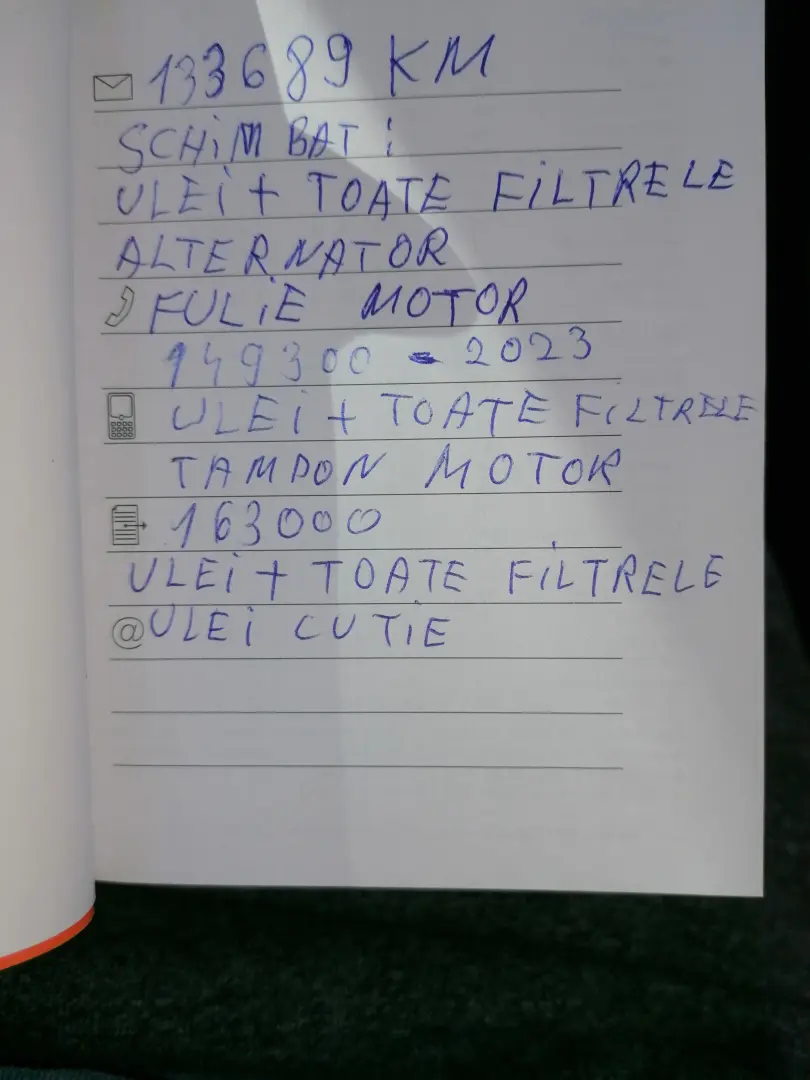 133689 KM
SCHiMBAT :
ULEi + TOATE FiLTRELE
ALTERNATOR
FULiE MOTOR
149300 - 2023
ULEi + TOATE FiLTRELE
TAMPON MOTOR
163000
ULEi + TOATE FiLTRELE
@ ULEi CUTiE